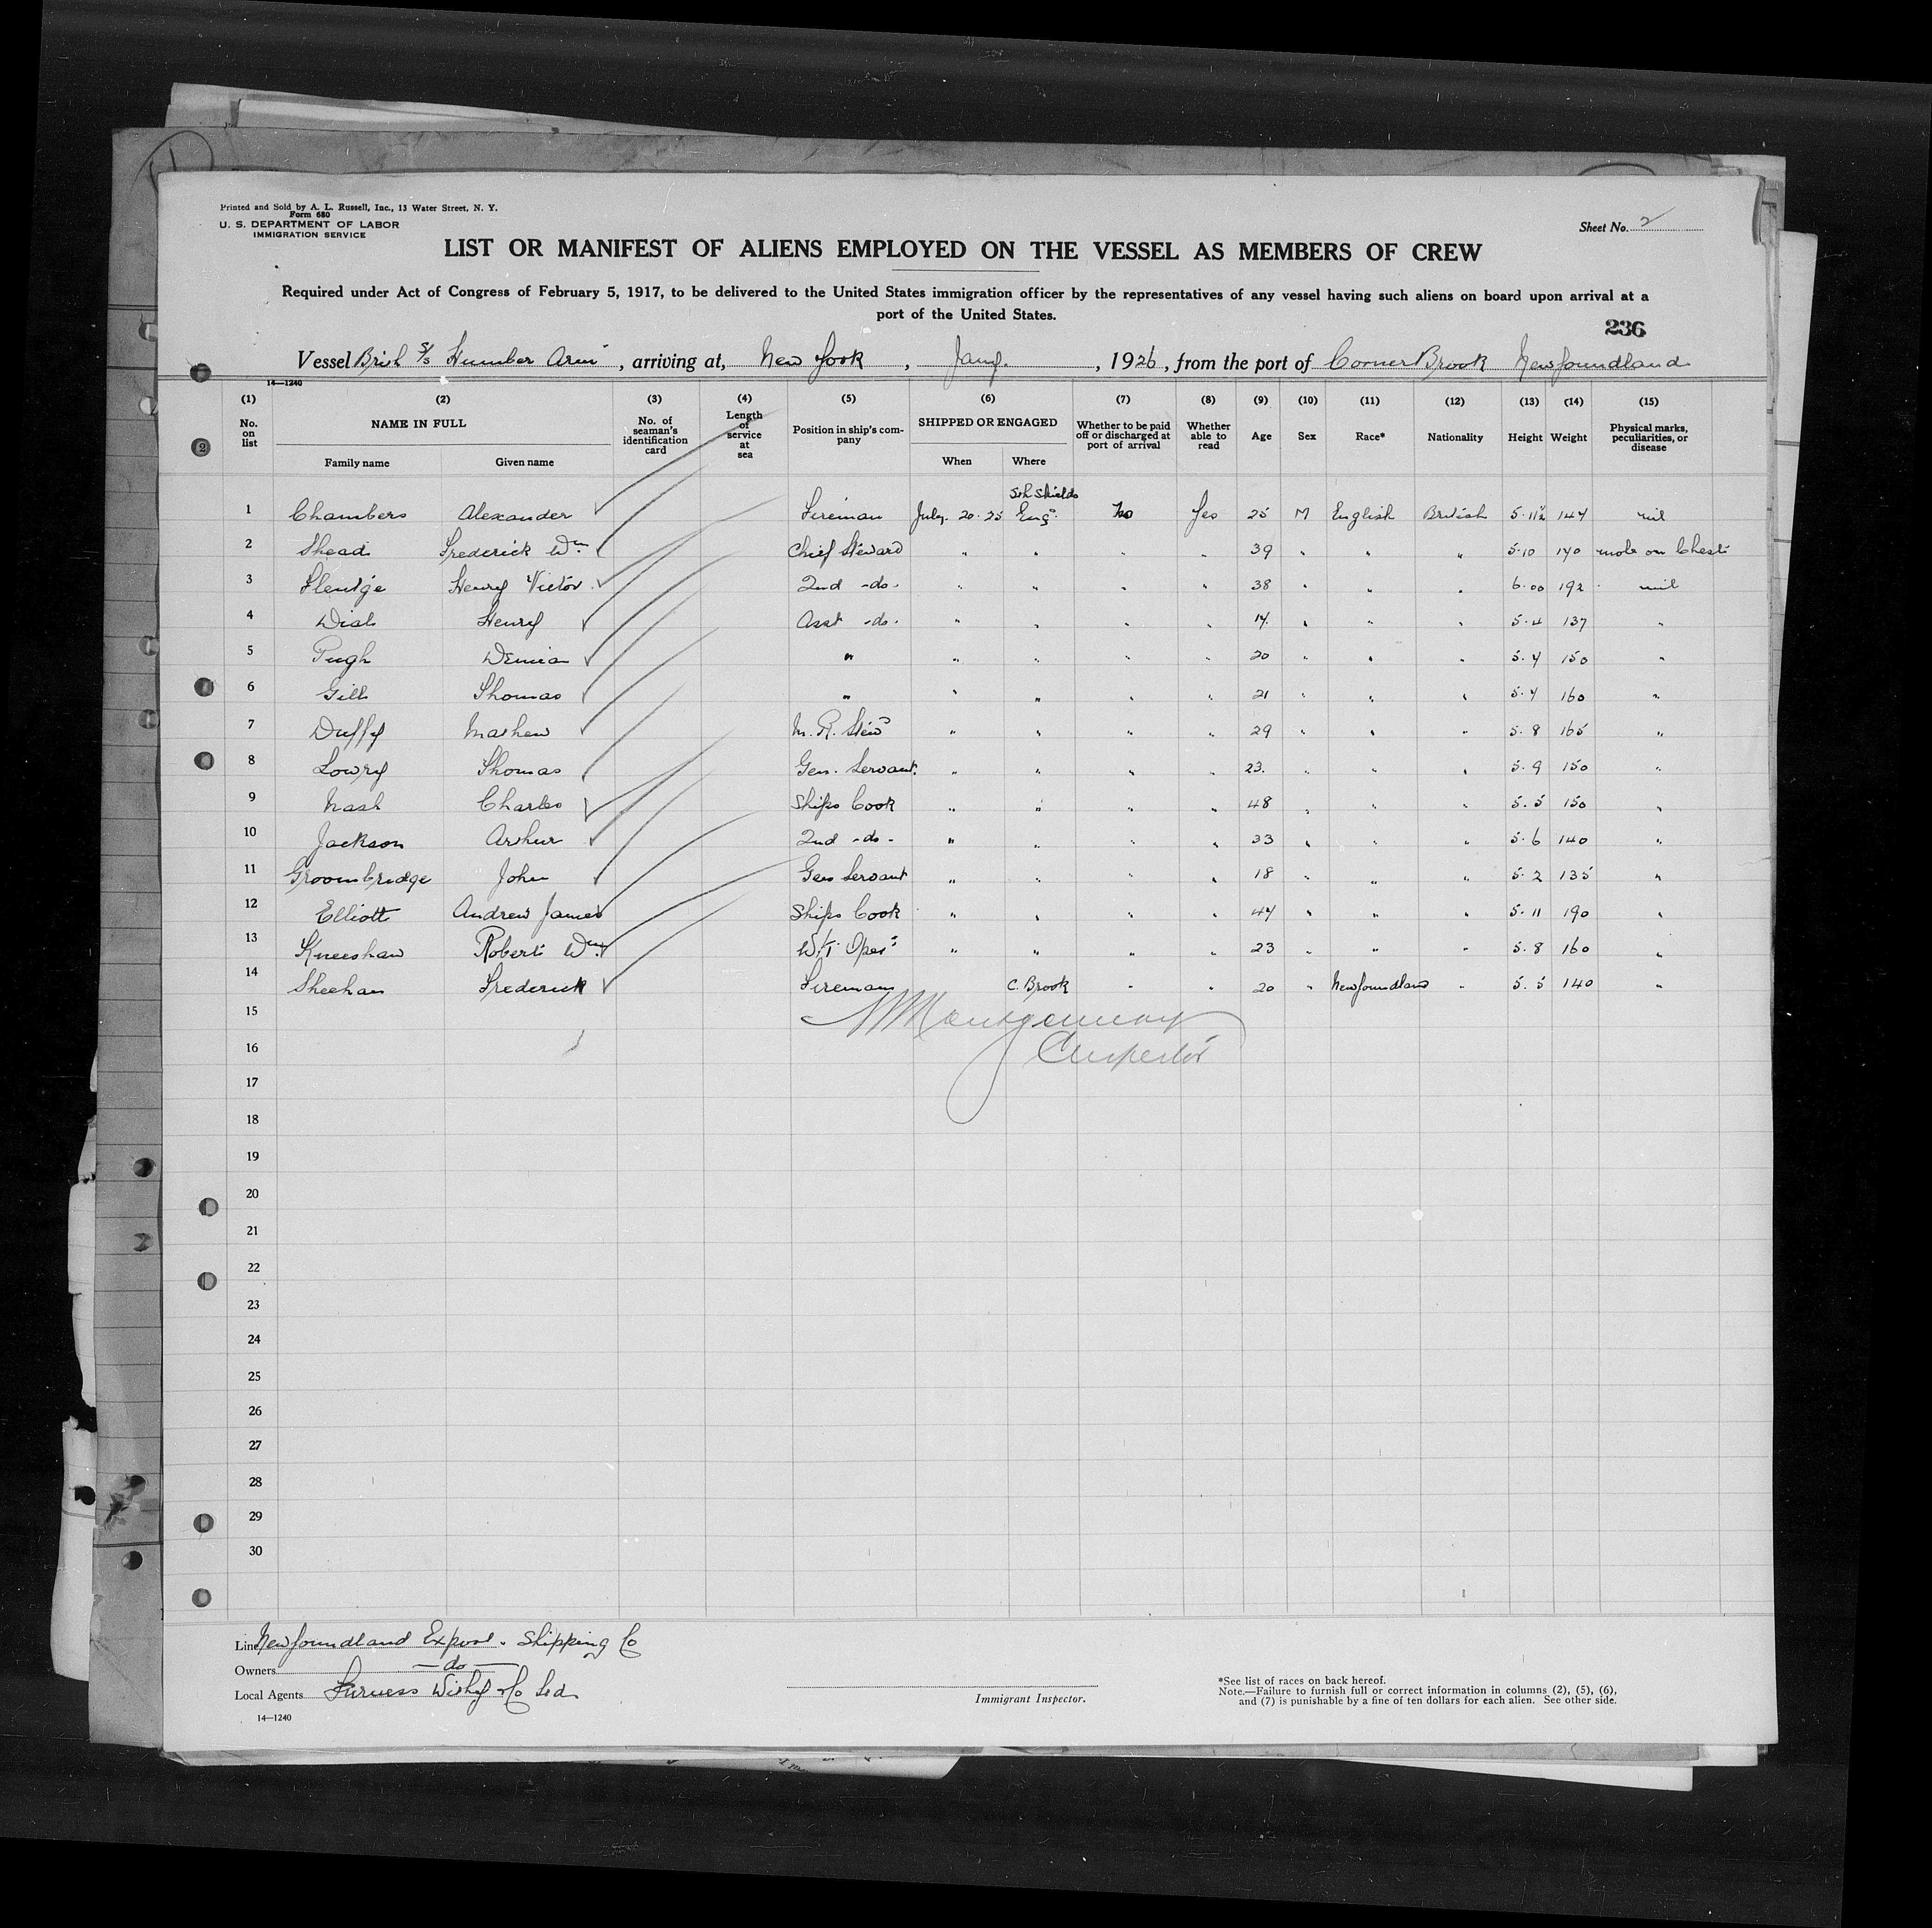 Printed and Sold by A. L. Russell, Inc., 13 Water Street, N. Y.
Form 680
U. S. DEPARTMENT OF LABOR
IMMIGRATION SERVICE
Sheet No. 2
LIST OR MANIFEST OF ALIENS EMPLOYED ON THE VESSEL AS MEMBERS OF CREW
Required under Act of Congress of February 5, 1917, to be delivered to the United States immigration officer by the representatives of any vessel having such aliens on board upon arrival at a
port of the United States.
236
Vessel Brish S/S Humber Arm, arriving at, New York, Jany., 1926, from the port of Corner Brook Newfoundland
14—1240
(1) (2) (3) (4) (5) (6) (7) (8) (9) (10) (11) (12) (13) (14) (15)
No. on list NAME IN FULL No. of seaman's identification card Length of service at sea Position in ship's company SHIPPED OR ENGAGED Whether to be paid off or discharged at port of arrival Whether able to read Age Sex Race* Nationality Height Weight Physical marks, peculiarities, or disease
Family name Given name When Where
Sth Shields
1 Chambers Alexander Fireman July. 20. 25 Eng. No Yes 25 M English British 5.11½ 147 nil
2 Shead Frederick Wm Chief Steward " " " " 39 " " " 5.10 170 mole on Chest
3 Henry Victor 2nd -do- " " " " 38 " " " 6.00 192 nil
4 Henry Asst -do- " " " " " " " 5.4 137 "
5 Pugh " " " " " 20 " " " 5.4 150 "
6 Gill Thomas " " " " " 21 " " " 5.4 160 "
7 Duffy Mathew M.R. Stew " " " " 29 " " " 5.8 165 "
8 Lowry Thomas Gen. Servant " " " " 23. " " " 5.9 150 "
9 Nash Charles Ships Cook " " " " 48 " " " 5.5 150 "
10 Jackson Arthur 2nd -do- " " " " 33 " " " 5.6 140 "
11 Groombridge John Gen Servant " " " " 18 " " " 5.2 135 "
12 Elliott Andrew James Ships Cook " " " " 47 " " " 5.11 190 "
13 Kneeshaw Robert Wm W/T Oper " " " " 23 " " " 5.8 160 "
14 Sheehan Frederick Fireman C. Brook " " 20 " Newfoundland " 5.5 140 "
15 Montgomery
16 Inspector
17
18
19
20
21
22
23
24
25
26
27
28
29
30
Line Newfoundland Export. Shipping Co
Owners —do—
Local Agents Furness Withy & Co Ltd
Immigrant Inspector.
*See list of races on back hereof.
Note.—Failure to furnish full or correct information in columns (2), (5), (6),
and (7) is punishable by a fine of ten dollars for each alien. See other side.
14—1240